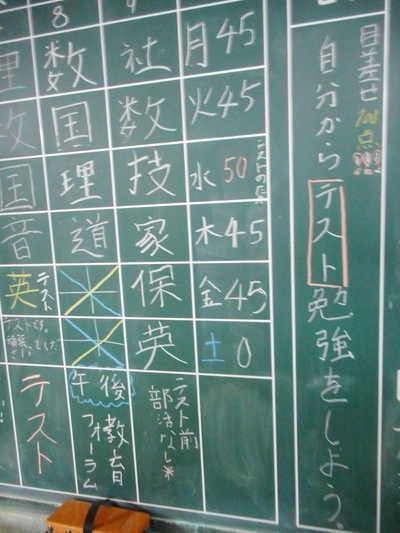 目差せ100点!!!
自分からテスト勉強をしよう。
月45
火45
水50
木45
金45
土0
社
数
技
家
保
英
テスト前
部活なし*
8
数
国
理
道
午後
教育
フォーラム
理
数
国
音
英テスト
テスト